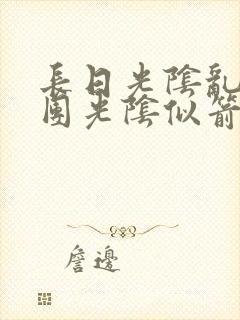 長日光陰亂
團光陰似箭
詹邊